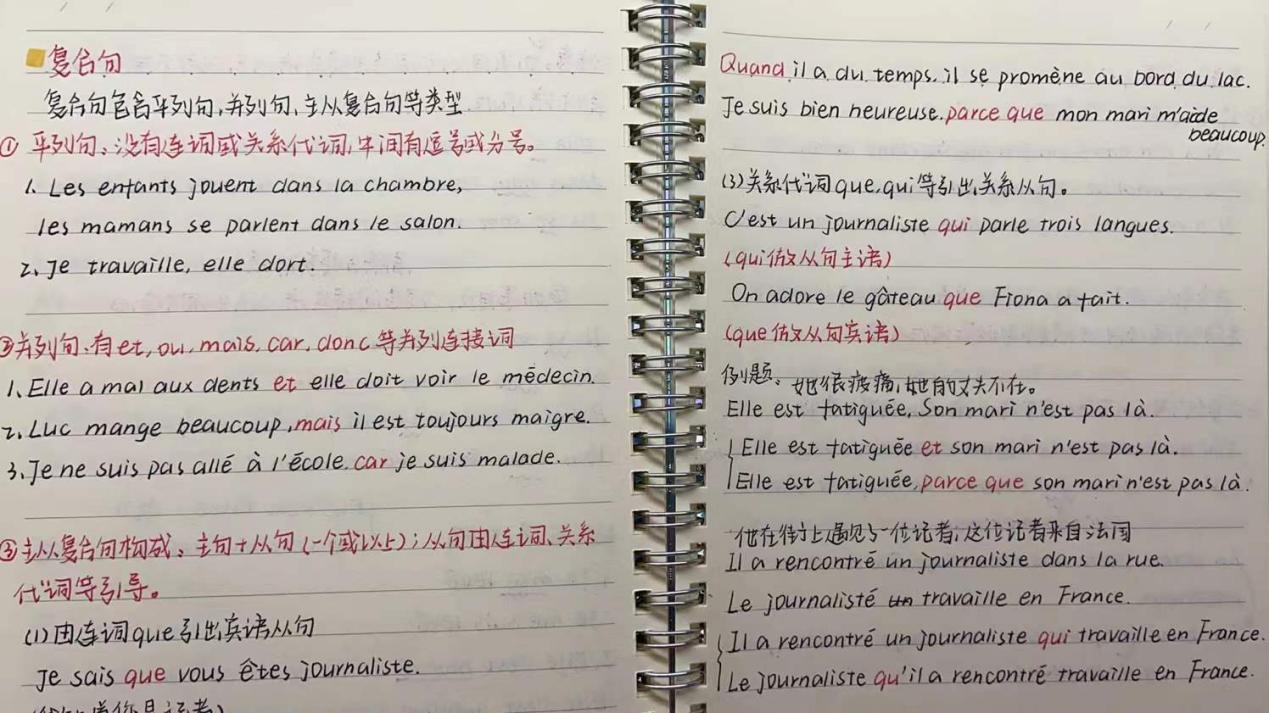 复合句
复合句包含平列句,并列句,主从复合句等类型
① 平列句、没有连词或关系代词,中间有逗号或分号。
1. Les enfants jouent dans la chambre,
les mamans se parlent dans le salon.
2. Je travaille, elle dort.
②并列句、有et, ou, mais, car, donc 等并列连接词
1. Elle a mal aux dents et elle doit voir le médecin.
2. Luc mange beaucoup, mais il est toujours maigre.
3. Je ne suis pas allé à l'école, car je suis malade.
③主从复合句构成、主句+从句(一个或以上);从句由连词、关系
代词等引导。
(1)由连词que引出宾语从句
Je sais que vous êtes journaliste.
道你是记者)
Quand il a du temps, il se promène au bord du lac.
Je suis bien heureuse, parce que mon mari m'aide
beaucoup.
(3)关系代词que, qui等引出关系从句。
C'est un journaliste qui parle trois langues.
(qui做从句主语)
On adore le gâteau que Fiona a fait.
(que做从句宾语)
例题、她很疲痛,她的丈夫不在。
Elle est fatiguée, Son mari n'est pas là.
Elle est fatiguée et son mari n'est pas là.
Elle est fatiguée, parce que son mari n'est pas là.
他在街上遇见了一位记者;这位记者来自法国
Il a rencontré un journaliste dans la rue.
Le journalisté un travaille en France.
Il a rencontré un journaliste qui travaille en France.
Le journaliste qu'il a rencontré travaille en France.